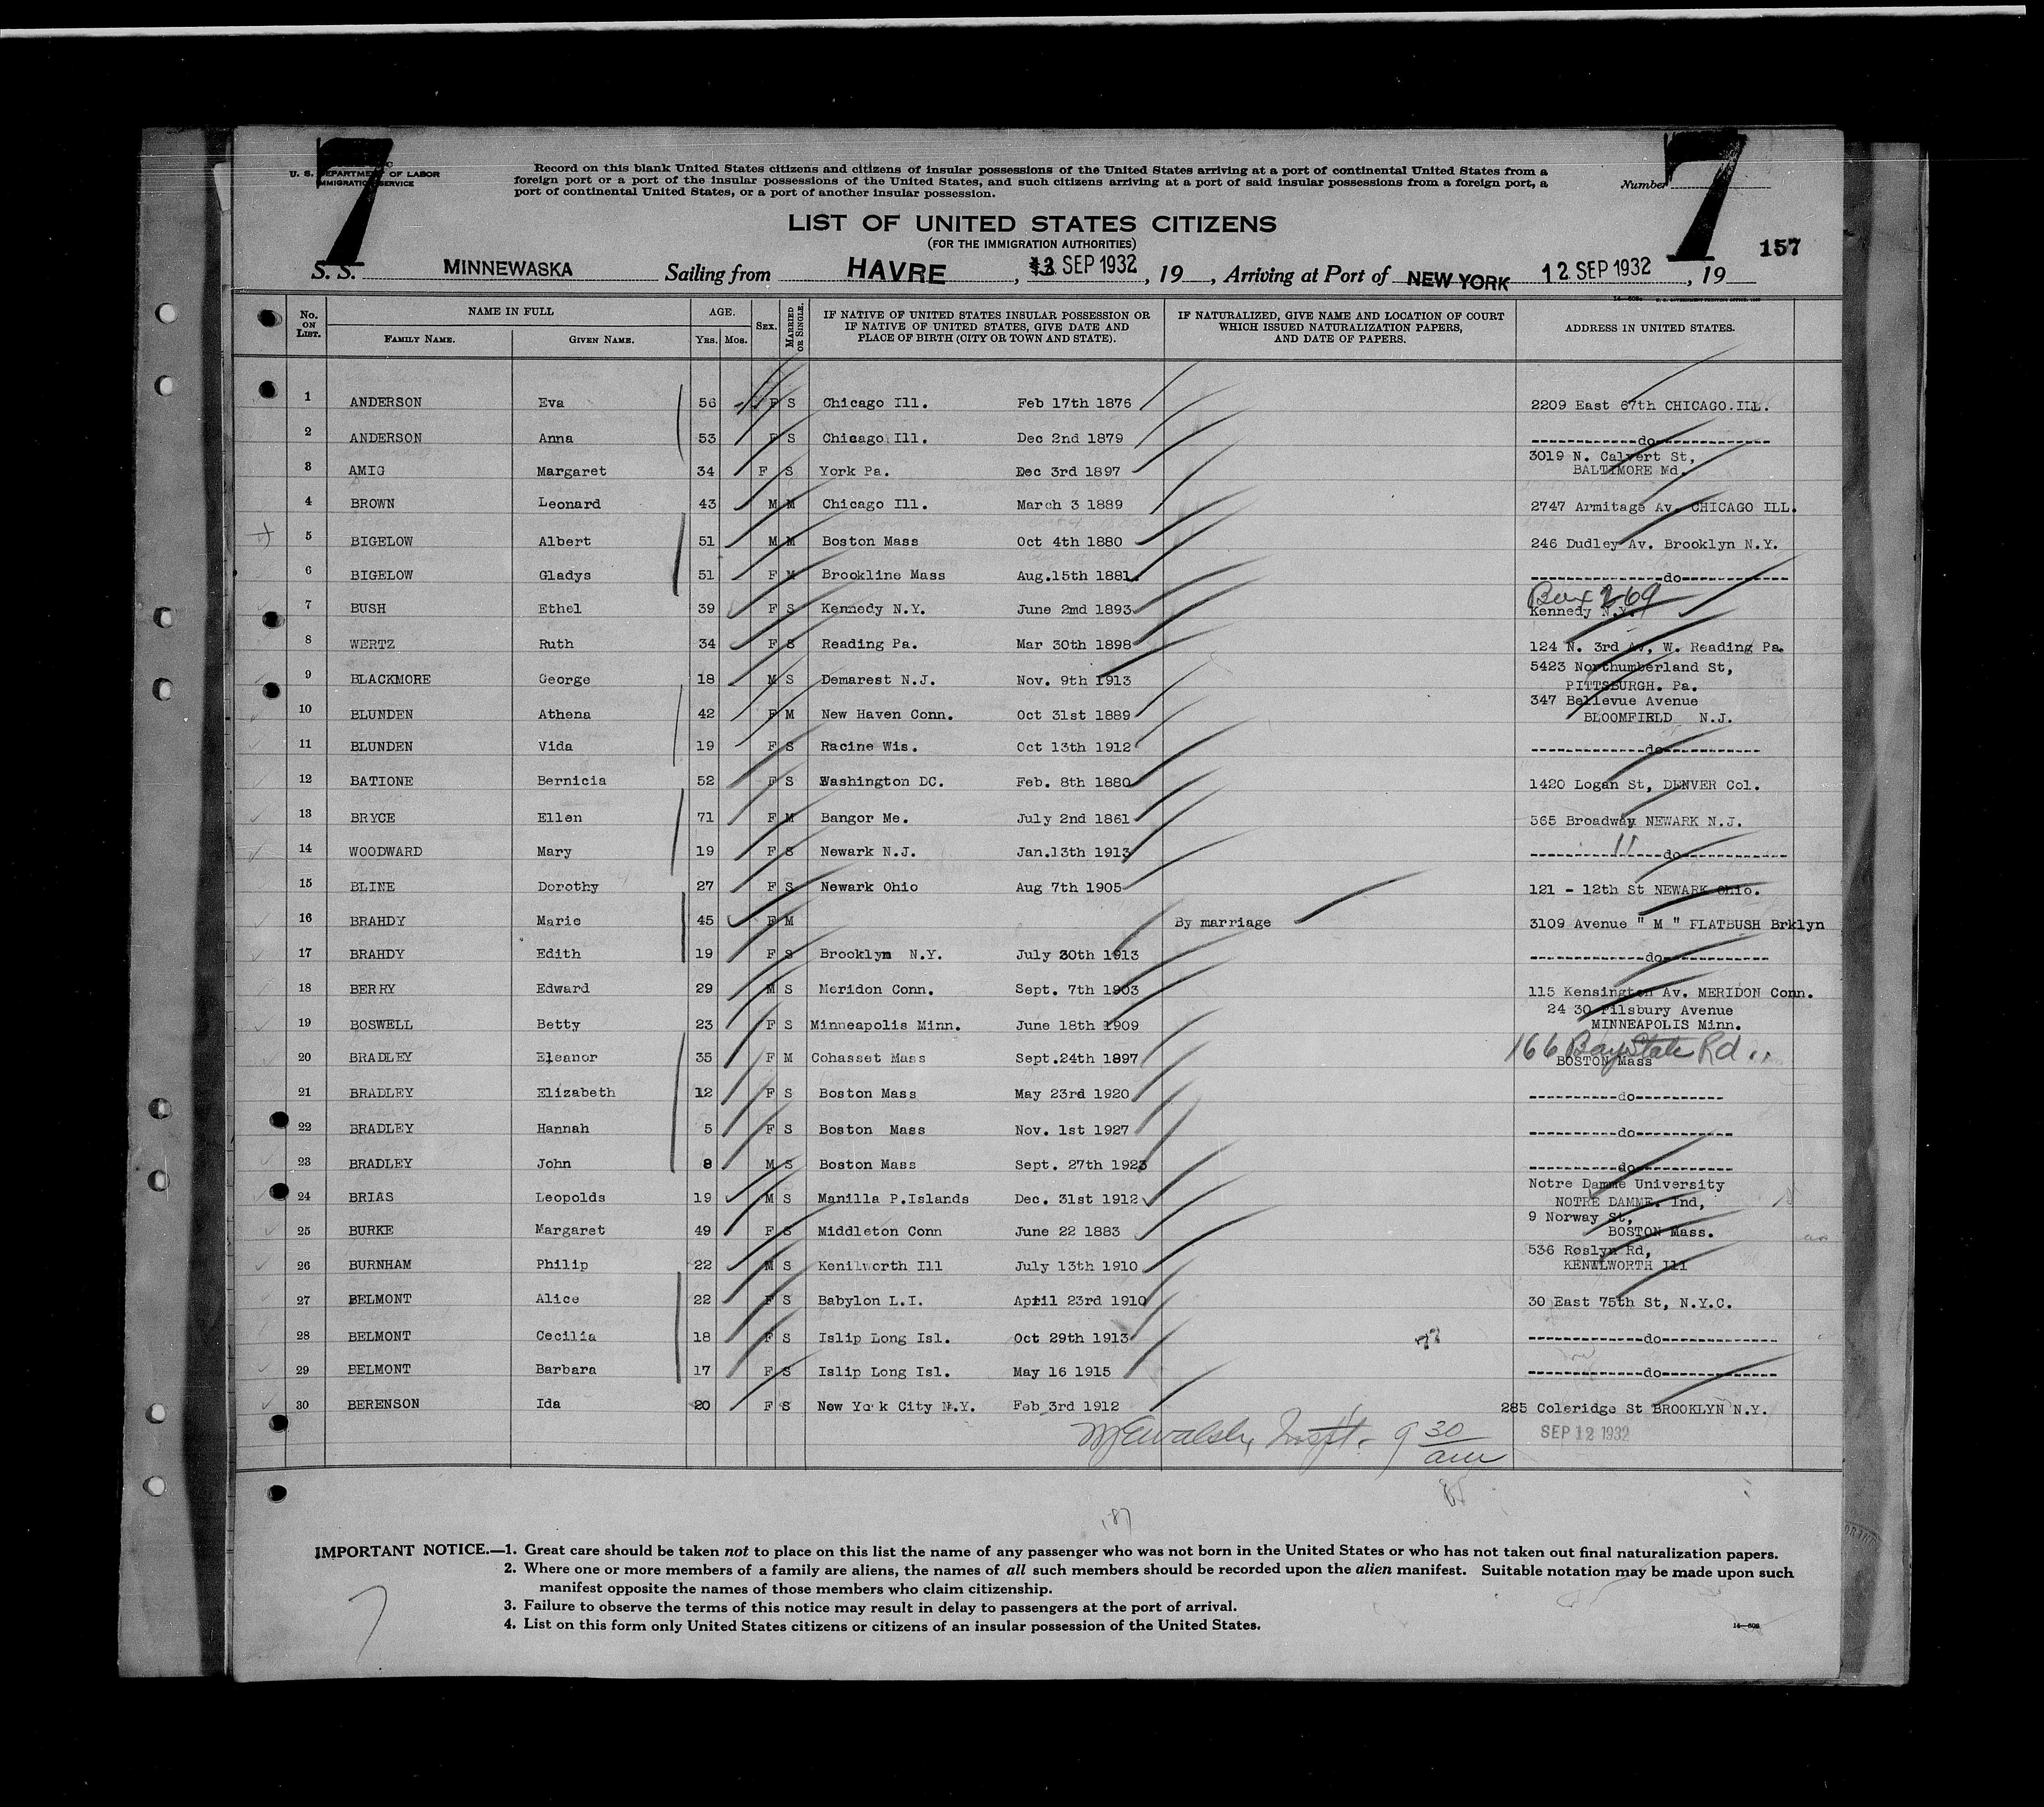 7
7
U. S. DEPARTMENT OF LABOR
IMMIGRATION SERVICE
Record on this blank United States citizens and citizens of insular possessions of the United States arriving at a port of continental United States from a
foreign port or a port of the insular possessions of the United States, and such citizens arriving at a port of said insular possessions from a foreign port, a
port of continental United States, or a port of another insular possession.
Number
LIST OF UNITED STATES CITIZENS
(FOR THE IMMIGRATION AUTHORITIES)
157
S. S. MINNEWASKA Sailing from HAVRE, SEP 1932, 19, Arriving at Port of NEW YORK 12 SEP 1932, 19
No. ON LIST. NAME IN FULL FAMILY NAME. GIVEN NAME. AGE. YRS. MOS. SEX. MARRIED OR SINGLE. IF NATIVE OF UNITED STATES INSULAR POSSESSION OR IF NATIVE OF UNITED STATES, GIVE DATE AND PLACE OF BIRTH (CITY OR TOWN AND STATE). IF NATURALIZED, GIVE NAME AND LOCATION OF COURT WHICH ISSUED NATURALIZATION PAPERS, AND DATE OF PAPERS. ADDRESS IN UNITED STATES.
1 ANDERSON Eva 56 F S Chicago Ill. Feb 17th 1876 2209 East 67th CHICAGO.ILL.
2 ANDERSON Anna 53 F S Chicago Ill. Dec 2nd 1879 -------------do--------------
3 AMIG Margaret 34 F S York Pa. Dec 3rd 1897 3019 N. Calvert St,
BALTIMORE Md.
4 BROWN Leonard 43 M M Chicago Ill. March 3 1889 2747 Armitage Av. CHICAGO ILL.
5 BIGELOW Albert 51 M M Boston Mass Oct 4th 1880 246 Dudley Av. Brooklyn N.Y.
6 BIGELOW Gladys 51 F M Brookline Mass Aug.15th 1881. ----------------do-------------
Box 269
7 BUSH Ethel 39 F S Kennedy N.Y. June 2md 1893 Kennedy N.Y.
8 WERTZ Ruth 34 F S Reading Pa. Mar 30th 1898 124 N. 3rd Av, W. Reading Pa.
9 BLACKMORE George 18 M S Demarest N.J. Nov. 9th 1913 5423 Northumberland St,
PITTSBURGH. Pa.
10 BLUNDEN Athena 42 F M New Haven Conn. Oct 31st 1889 347 Bellevue Avenue
BLOOMFIELD N.J.
11 BLUNDEN Vida 19 F S Racine Wis. Oct 13th 1912 --------------do------------
12 BATIONE Bernicia 52 F S Washington DC. Feb. 8th 1880 1420 Logan St, DENVER Col.
13 BRYCE Ellen 71 F M Bangor Me. July 2nd 1861 565 Broadway NEWARK N.J.
14 WOODWARD Mary 19 F S Newark N.J. Jan.13th 1913 ----------------do-------------
15 BLINE Dorothy 27 F S Newark Ohio Aug 7th 1905 121 - 12th St NEWARK Ohio.
16 BRAHDY Marie 45 F M By marriage 3109 Avenue " M " FLATBUSH Brklyn
17 BRAHDY Edith 19 F S Brooklyn N.Y. July 30th 1913 --------------do-------------
18 BERRY Edward 29 M S Meridon Conn. Sept. 7th 1903 115 Kensington Av. MERIDON Conn.
19 BOSWELL Betty 23 F S Minneapolis Minn. June 18th 1909 24 30 Pilsbury Avenue
MINNEAPOLIS Minn.
166 Bay State Rd..
20 BRADLEY Eleanor 35 F M Cohasset Mass Sept.24th 1897 BOSTON Mass
21 BRADLEY Elizabeth 12 F S Boston Mass May 23rd 1920 -----------do-----------
22 BRADLEY Hannah 5 F S Boston Mass Nov. 1st 1927 -----------do------------
23 BRADLEY John 8 M S Boston Mass Sept. 27th 1923 -----------do------------
24 BRIAS Leopolds 19 M S Manilla P.Islands Dec. 31st 1912 Notre Damme University
NOTRE DAMME. Ind,
25 BURKE Margaret 49 F S Middleton Conn June 22 1883 9 Norway St,
BOSTON Mass.
26 BURNHAM Philip 22 M S Kenilworth Ill July 13th 1910 536 Roslyn Rd,
KENILWORTH Ill
27 BELMONT Alice 22 F S Babylon L.I. April 23rd 1910 30 East 75th St, N.Y.C.
28 BELMONT Cecilia 18 F S Islip Long Isl. Oct 29th 1913 --------------do--------------
29 BELMONT Barbara 17 F S Islip Long Isl. May 16 1915 --------------do--------------
30 BERENSON Ida 20 F S New York City N.Y. Feb 3rd 1912 285 Coleridge St BROOKLYN N.Y.
9 30 am
SEP 12 1932
IMPORTANT NOTICE.—1. Great care should be taken not to place on this list the name of any passenger who was not born in the United States or who has not taken out final naturalization papers.
2. Where one or more members of a family are aliens, the names of all such members should be recorded upon the alien manifest. Suitable notation may be made upon such
manifest opposite the names of those members who claim citizenship.
3. Failure to observe the terms of this notice may result in delay to passengers at the port of arrival.
4. List on this form only United States citizens or citizens of an insular possession of the United States.
7